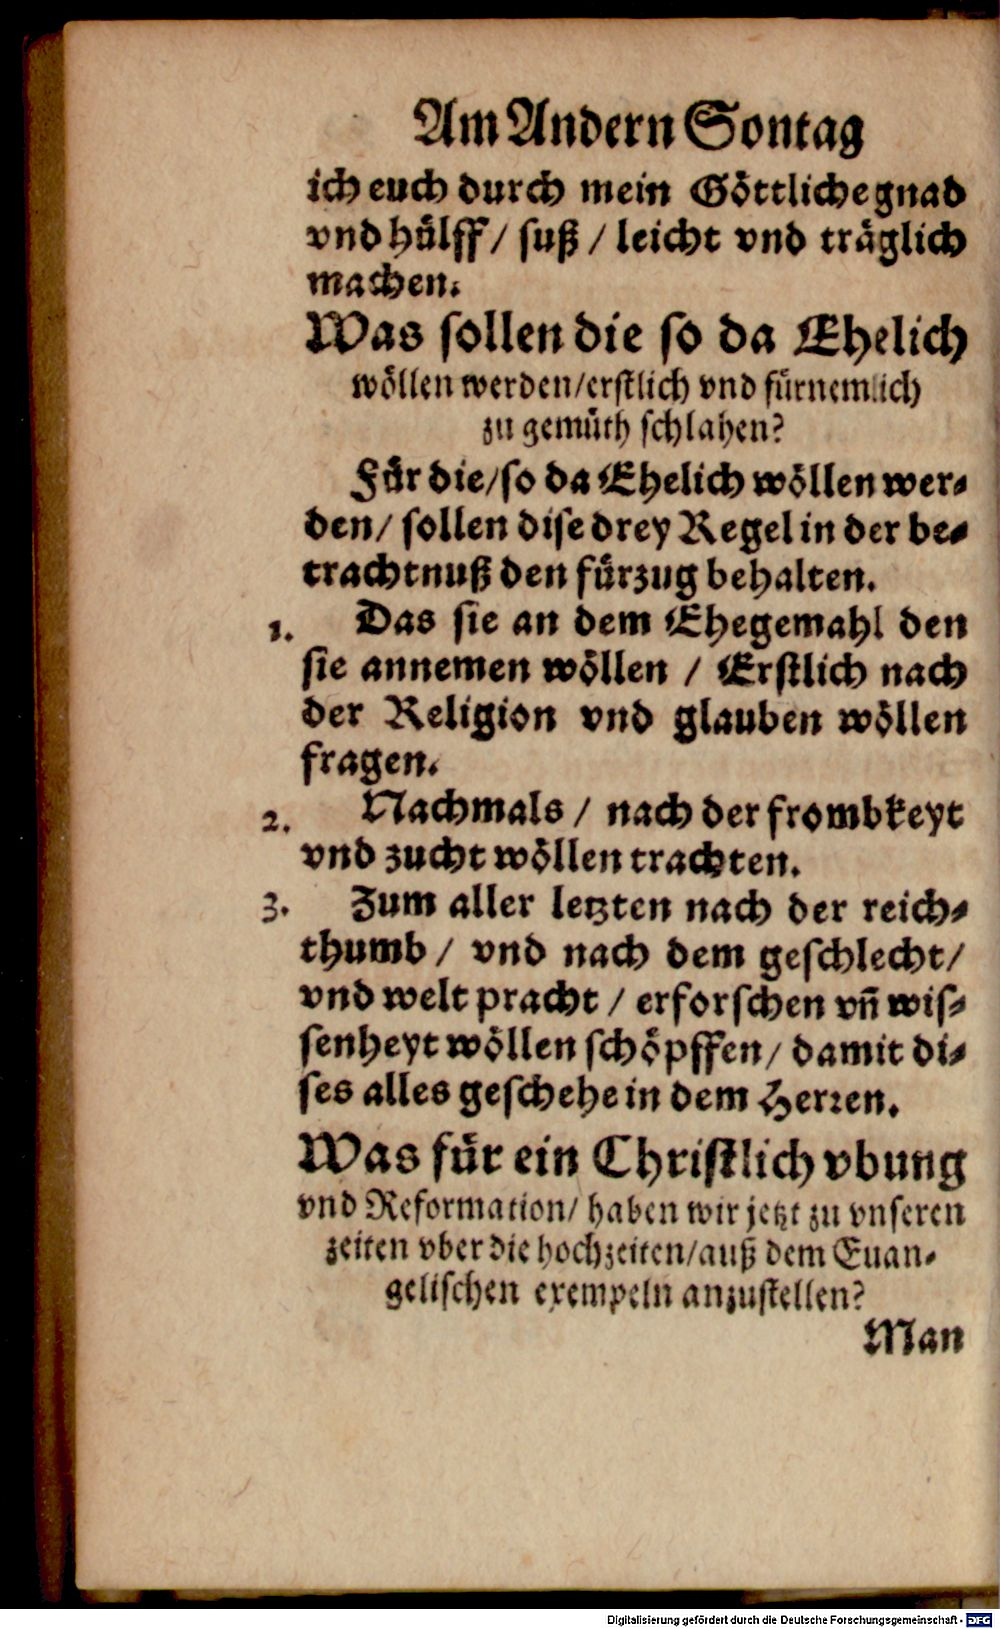 Am Andern Sontag
ich euch durch mein Göttliche gnad
vnd hülff / suß / leicht vnd träglich
machen.
Was sollen die so da Ehelich
wöllen werden/erstlich vnd fürnemlich
zu gemüth schlahen?
Für die/so da Ehelich wöllen wer-
den/ sollen dise drey Regel in der be-
trachtnuß den fürzug behalten.
1. Das sie an dem Ehegemahl den
sie annemen wöllen / Erstlich nach
der Religion vnd glauben wöllen
fragen.
2. Nachmals / nach der frombkeyt
vnd zucht wöllen trachten.
3. Zum aller letzten nach der reich-
thumb / vnd nach dem geschlecht/
vnd welt pracht / erforschen vn̄ wis-
senheyt wöllen schöpffen/ damit di-
ses alles geschehe in dem Herren.
Was für ein Christlich vbung
vnd Reformation/ haben wir jetzt zu vnseren
zeiten vber die hochzeiten/auß dem Euan-
gelischen exempeln anzustellen?
Man
Digitalisierung gefördert durch die Deutsche Forschungsgemeinschaft - DFG